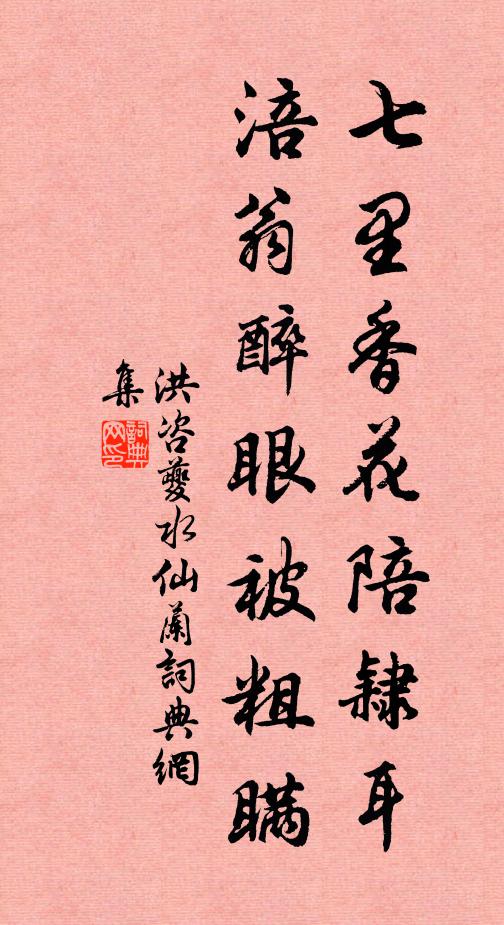 七里香花陪隸耳
涪翁醉眼被粗瞞
洪咨夔水仙蘭詞典網
集
詞典
网印